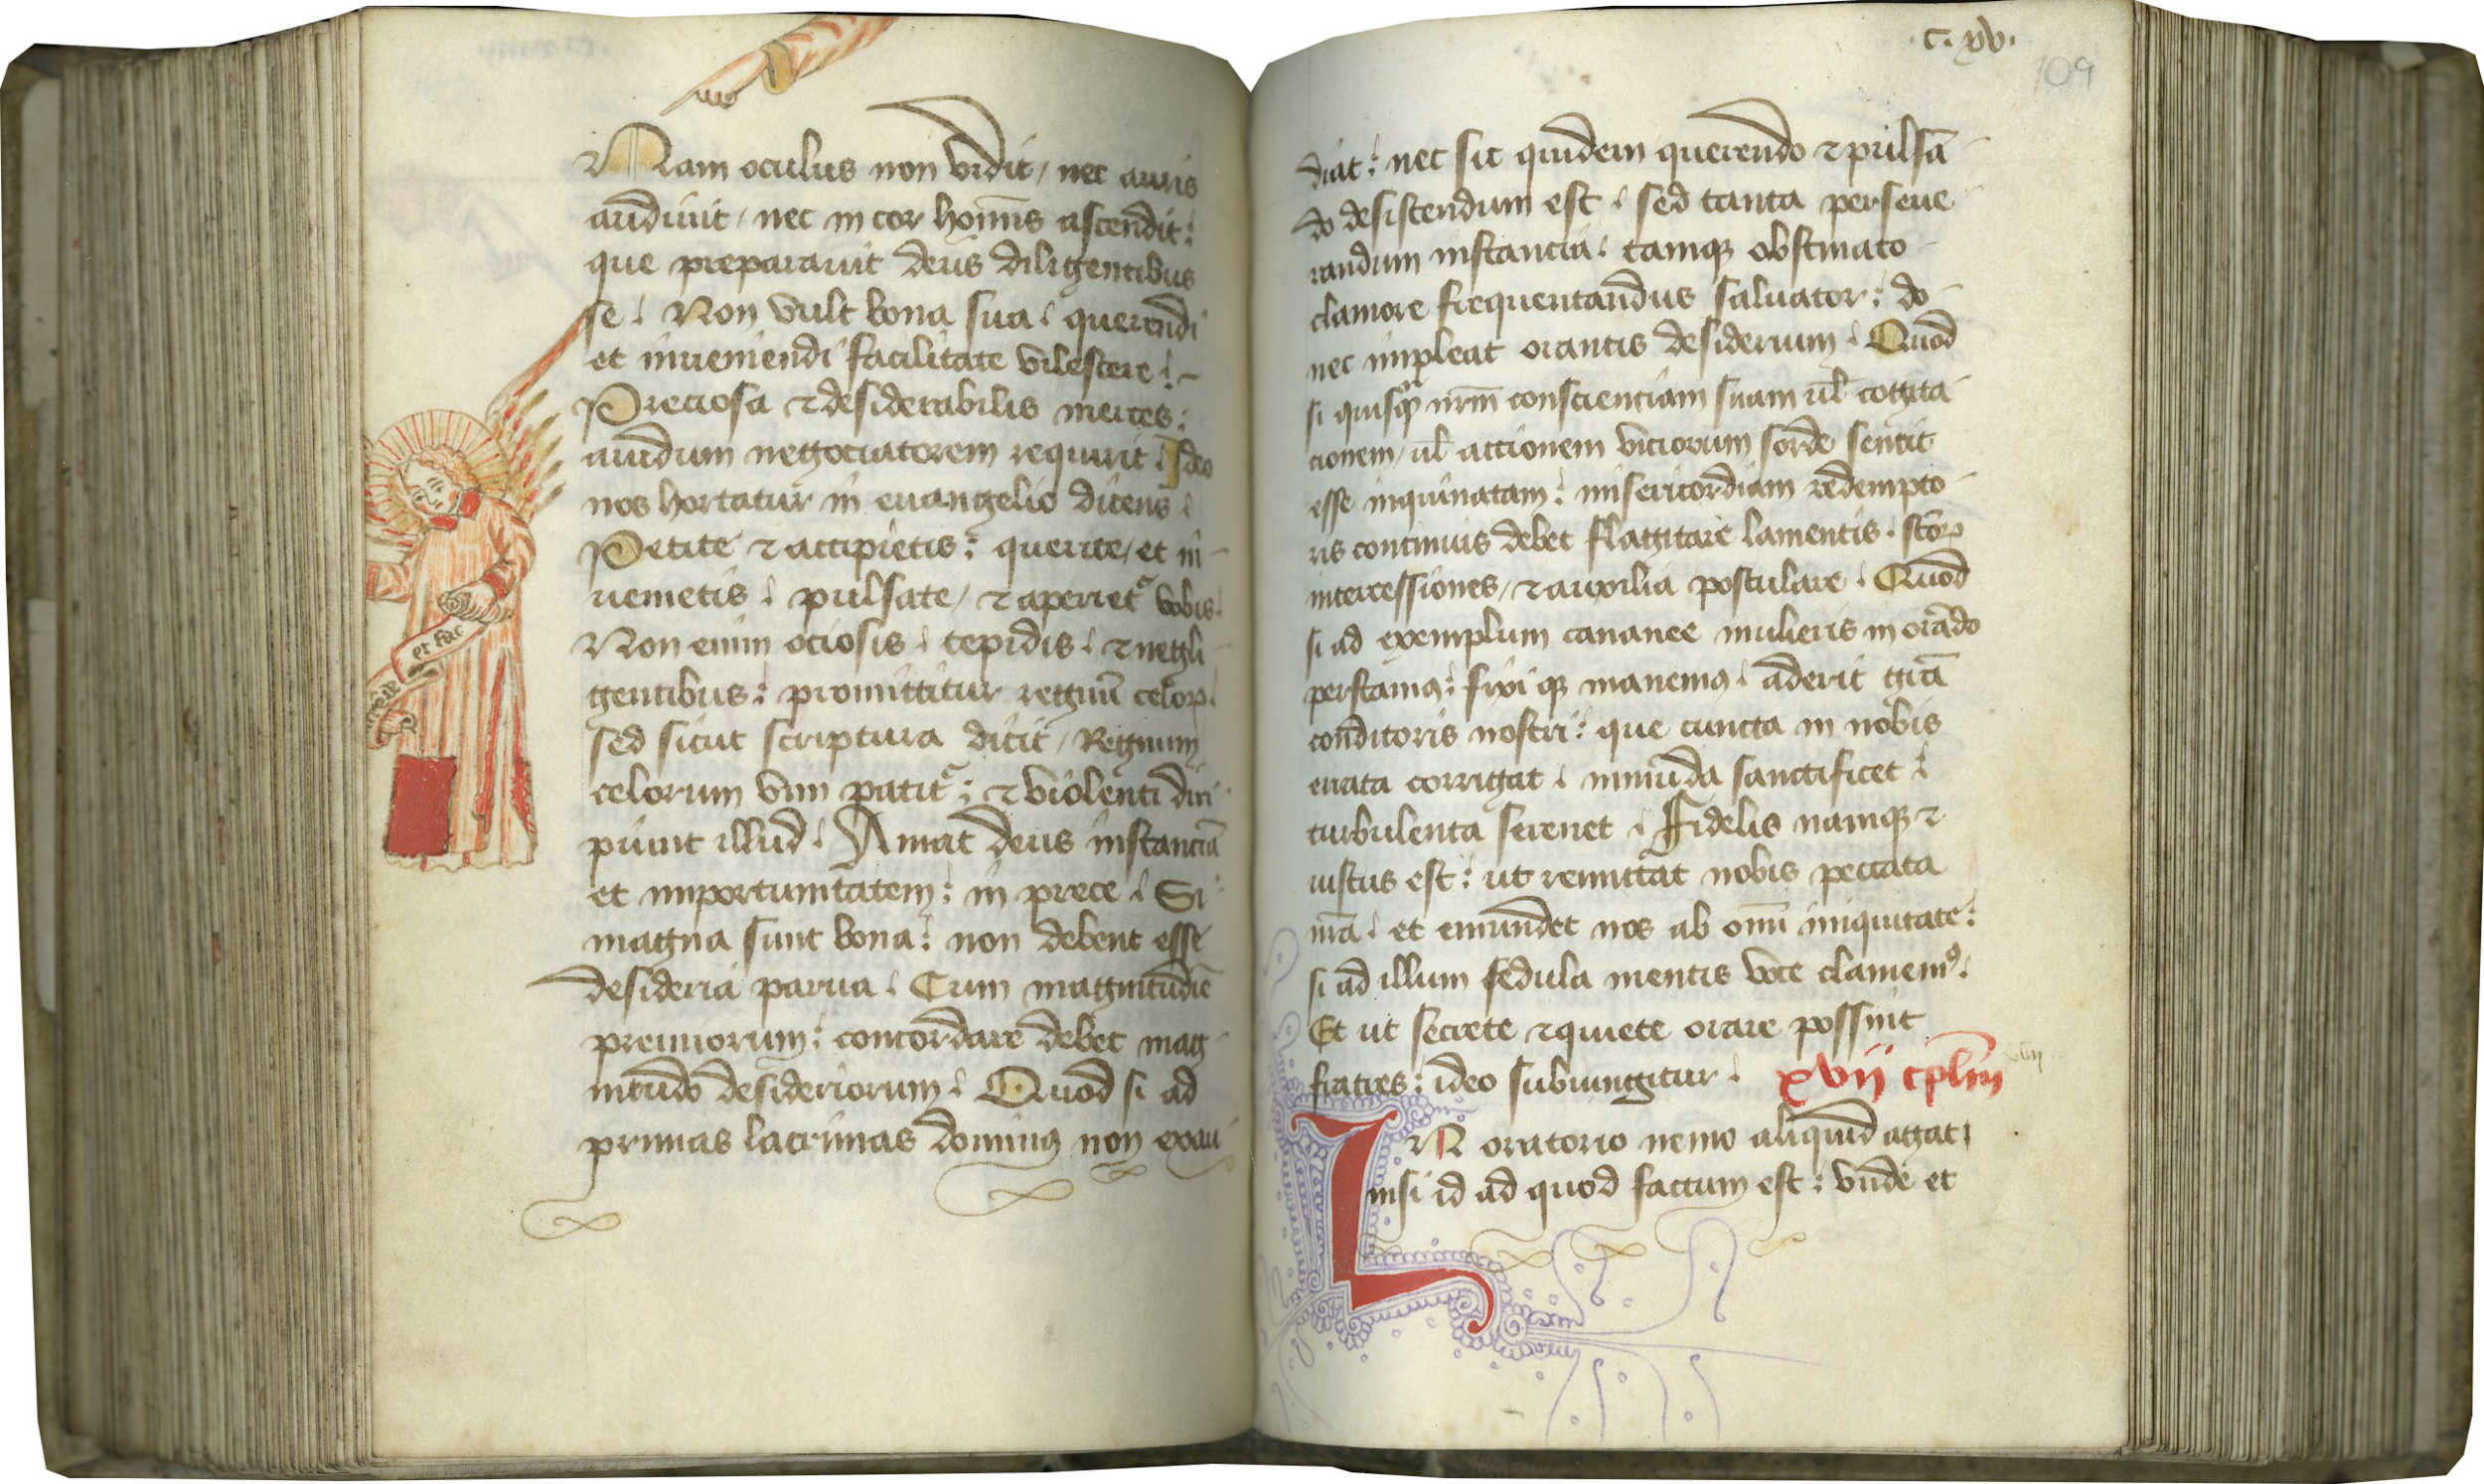 Nam oculus non vidit / nec auris
audiuit / nec in cor homīs ascendit :
que preparauit deus diligentibus
se . Non vult bona sua . querendi
et inueniendi facilitate vilescere . -
Preciosa ⁊ desiderabilis merces :
auidum negociatorem requirit . Ideo
nos hortatur in euangelio dicens .
Petite ⁊ accipietis : querite / et in-
uenietis . pulsate / ⁊ aperietᷣ vobis .
Non enim ociosis . tepidis . ⁊ negli-
gentibus : promittitur regnū celoꝝ .
sed sicut scriptura dicit / Regnum
celorum vim patitᷣ : ⁊ violenti diri-
piunt illud . Amat deus instanciā
et importunitatem : in prece . Si
magna sunt bona : non debent esse
desideria parua . Cum magnitudīe
premiorum : concordare debet mag-
nitudo desideriorum . Quod si ad
primas lacrimas dominꝰ non exau-
et fac
.c. xv.
109
diat : nec sic quidem querendo ⁊ pulsā-
do desistendum est . sed tanta perseue-
randum instancia . tamqꝫ obstinato
clamore frequentandus saluator : do-
nec impleat orantis desiderium . Quod
si quisqꝫ nr̄m conscienciam suam ul̄ cogita-
cionem / ul̄ actionem viciorum sorde sentit
esse inquinatam : misericordiam redempto-
ris continuis debet flagitare lamentis . sc̄oꝝ
intercessiones / ⁊ auxilia postulare . Quod
si ad exemplum cananee mulieris in orādo
perstamꝰ : fixi qꝫ manemꝰ . aderit gr̄a
conditoris nostri : que cuncta in nobis
errata corrigat . inmūda sanctificet .
turbulenta serenet . Fidelis namqꝫ ⁊
iustus est : ut remittat nobis peccata
nr̄a . et emundet nos ab om̄i iniquitate :
si ad illum sedula mentis voce clamemꝰ .
Et ut secrete ⁊ quiete orare possint
fratres : ideo subiungitur . xvij cplm̄
IN oratorio nemo aliquid agat ,
nisi id ad quod factum est : vnde et